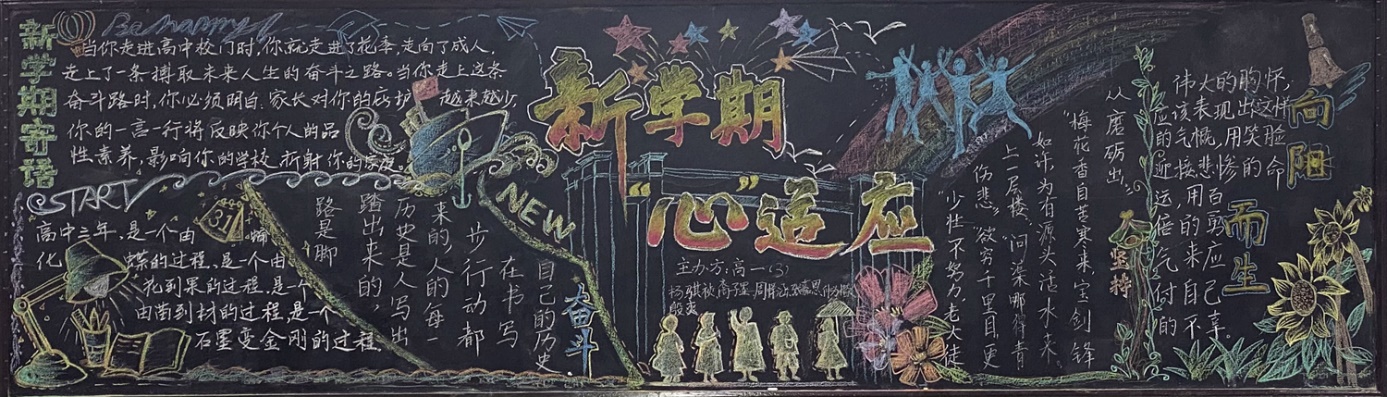 新学期寄语
Be happy
当你走进高中校门时,你就走进了花季,走向了成人,
走上了一条搏取未来人生的奋斗之路。当你走上这条
奋斗路时,你必须明白:家长对你的庇护 越来越少,
你的一言一行将反映你个人的品
性素养,影响你的学校,折射你的家庭。
START
31
高中三年,是一个由蛹
化蝶的过程,是一个由
花到果的过程,是一个
由苗到材的过程,是一个
石墨变金刚的过程。
路是脚
踏出来的
历史是人写出
来的,人的每一
步行动都
在书写
自己的历史.
NEW
奋斗
新学期
“心”适应
主办方:高一(3)
从磨砺出”
“梅花香自苦寒来,宝剑锋
如许,为有源头活水来,
上一层楼,“问渠哪得清
伤悲,”“欲穷千里目,更
“少壮不努力,老大徒
坚持
伟大的胸怀,
应该表现出这样
的气概,用笑脸
迎接悲惨的命
运,用百
倍的勇
气来应
付自己
的不幸。
向阳而生